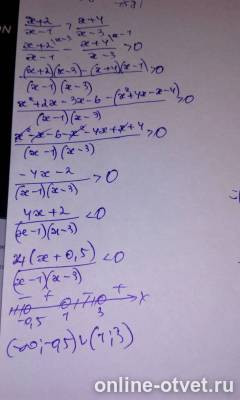 (x+2)/(x-1) > (x+4)/(x-3)
(x+2)/(x-1) - (x+4)/(x-3) > 0
((x+2)(x-3)-(x+4)(x-1))/((x-1)(x-3)) > 0
(x²+2x-3x-6-(x²+4x-x-4))/((x-1)(x-3)) > 0
(x²-x-6-x²-4x+x+4)/((x-1)(x-3)) > 0
(-4x-2)/((x-1)(x-3)) > 0
(4x+2)/((x-1)(x-3)) < 0
4(x+0,5)/((x-1)(x-3)) < 0
- + - + x
-0,5 1 3
(-∞;-0,5)∪(1;3)
online-otvet.ru